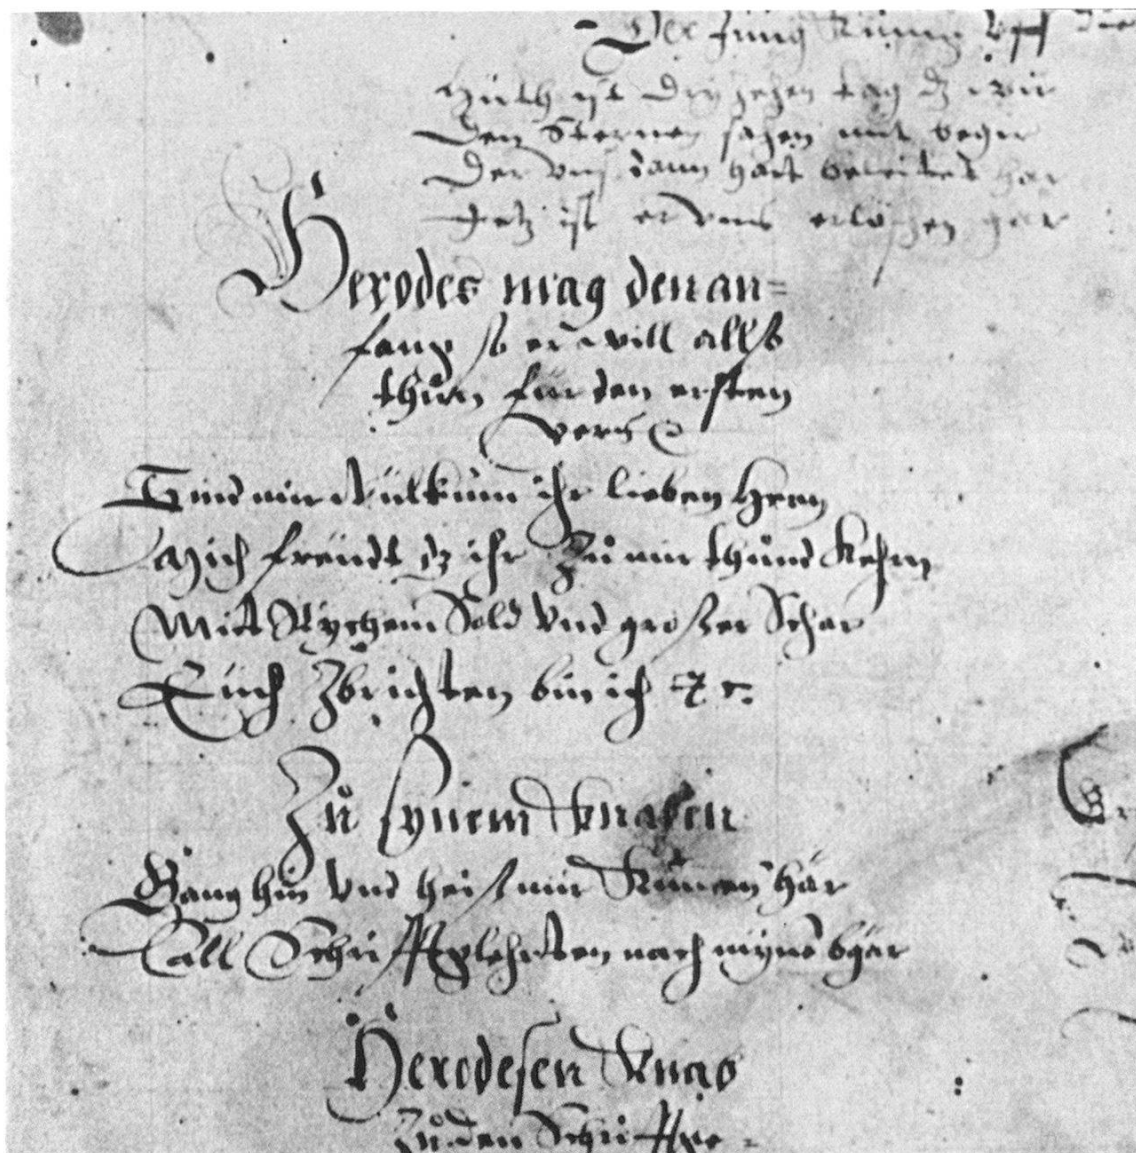 Der Jüng Künig
Hüth ist dryzehen tag dz wir
Den Sternen sahen mit begir
Der vns dann hart beleitet har
Jetz ist er vns erloschen gar
Herodes mag den an=
fang so er will alls
thůn für den ersten
vers
Sind mir Wülkum ihr lieben Hern
Mich freüdt dz ihr Zů mir thůnd Kehrn
Mitt Rychem Sold Vnd großer Schar
Eüch Zbrichten bin ich &c:
Zů synem Knaben
Gang hin Vnd heiß mir Kumen här
All Schrifftglehrten nach myns bgär
Herodesen Knab
Zů den Schrifftge=